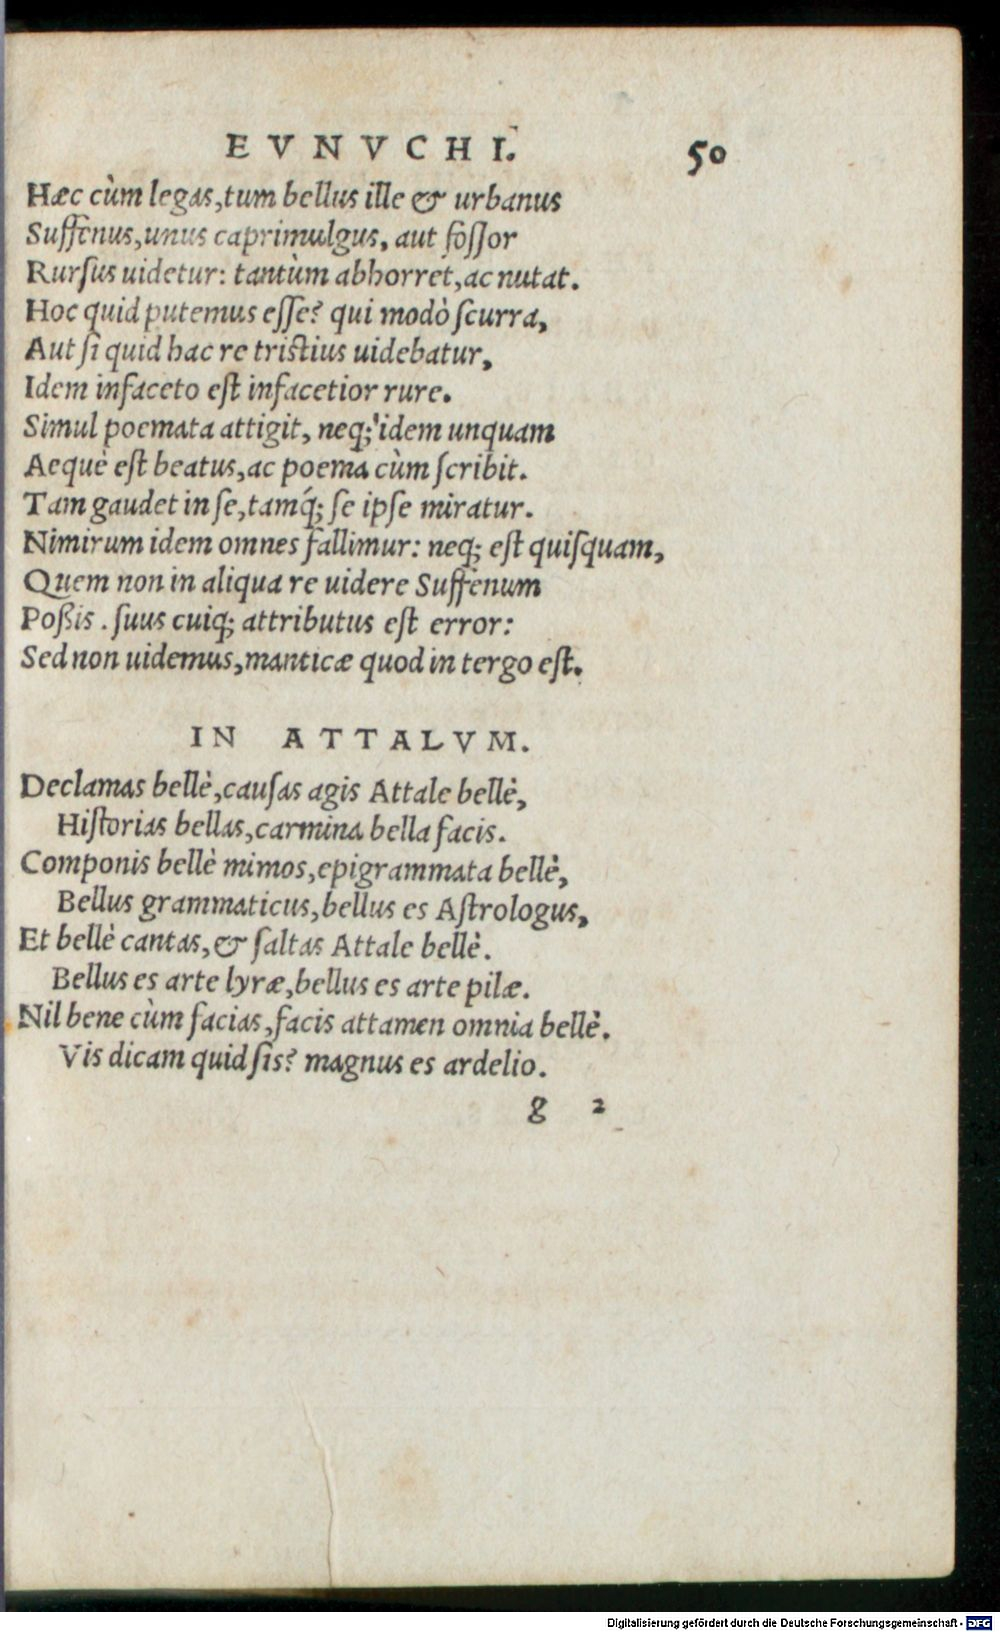 EVNVCHI. 50
Hæc cùm legas, tum bellus ille & urbanus
Suffenus, unus caprimulgus, aut fossor
Rursus uidetur: tantùm abhorret, ac nutat.
Hoc quid putemus esse? qui modò scurra,
Aut si quid hac re tristius uidebatur,
Idem infaceto est infacetior rure.
Simul poemata attigit, neq; idem unquam
Aequè est beatus, ac poema cùm scribit.
Tam gaudet in se, tamq́; se ipse miratur.
Nimirum idem omnes fallimur: neq; est quisquam,
Quem non in aliqua re uidere Suffenum
Poßis. suus cuiq; attributus est error:
Sed non uidemus, manticæ quod in tergo est.
IN ATTALVM.
Declamas bellè, causas agis Attale bellè,
Historias bellas, carmina bella facis.
Componis bellè mimos, epigrammata bellè,
Bellus grammaticus, bellus es Astrologus,
Et bellè cantas, & saltas Attale bellè.
Bellus es arte lyræ, bellus es arte pilæ.
Nil bene cùm facias, facis attamen omnia bellè.
Vis dicam quid sis? magnus es ardelio.
g 2
Digitalisierung gefördert durch die Deutsche Forschungsgemeinschaft - DFG